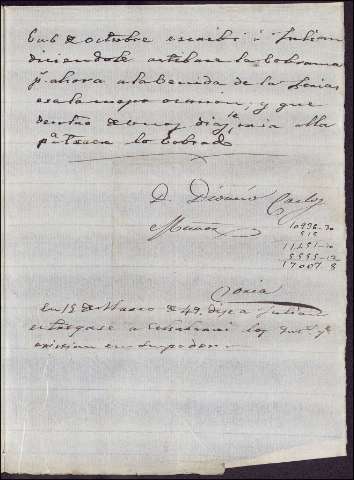 En 6 de octubre escribi á Julian
diciendole activase la Cobranza
pr. ahora a la venida de la
era la mejor ocasion, y que
dentro de unos dias iria alla
pa. traer lo Cobrado
D. Dionisio Carlos
Muñoz
10936-30
515
11451-10
5555-12
17007 8
Soria
En 15 de Marzo de 49. dije a Julian
entregase a los qe.
existian en su poder.